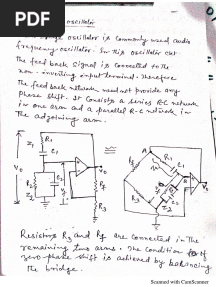 PDF
oscillator
oscillator is commonly used audio
frequency oscillator. In this oscillator ckt
the feed back signal is connected to the
non-inverting input terminal. Therefore
the feed back network need not provide any
phase shift. It consists a series RC network
in one arm and a parallel R-C network in
the adjoining arm.
Z1 R1 C1
Vo
R2 C2
Z2
Rf
R3
Vo
A
R1
C1
Rf
R3
Vo
Resistors R3 and Rf are connected in the
remaining two arms. The condition of
zero phase shift is achieved by balancing
the bridge.
Scanned with CamScanner